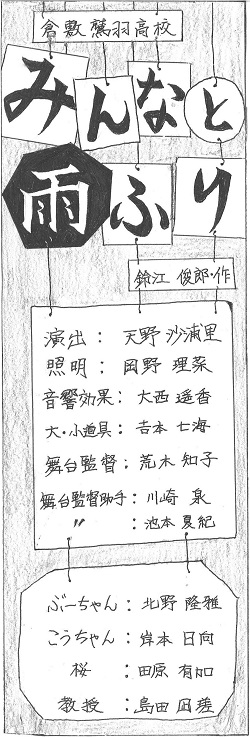 倉敷鷲羽高校
みんなと
雨ふり
鈴江 俊郎・作
演出: 天野 沙浦里
照明: 岡野 理菜
音響効果: 大西 遥香
大・小道具: 吉本 七海
舞台監督: 荒木 知子
舞台監督助手: 川崎 泉
〃: 池本 夏紀
ぶーちゃん: 北野 隆雅
こうちゃん: 岸本 日向
桜: 田原 有加
教授: 島田 凪瑳